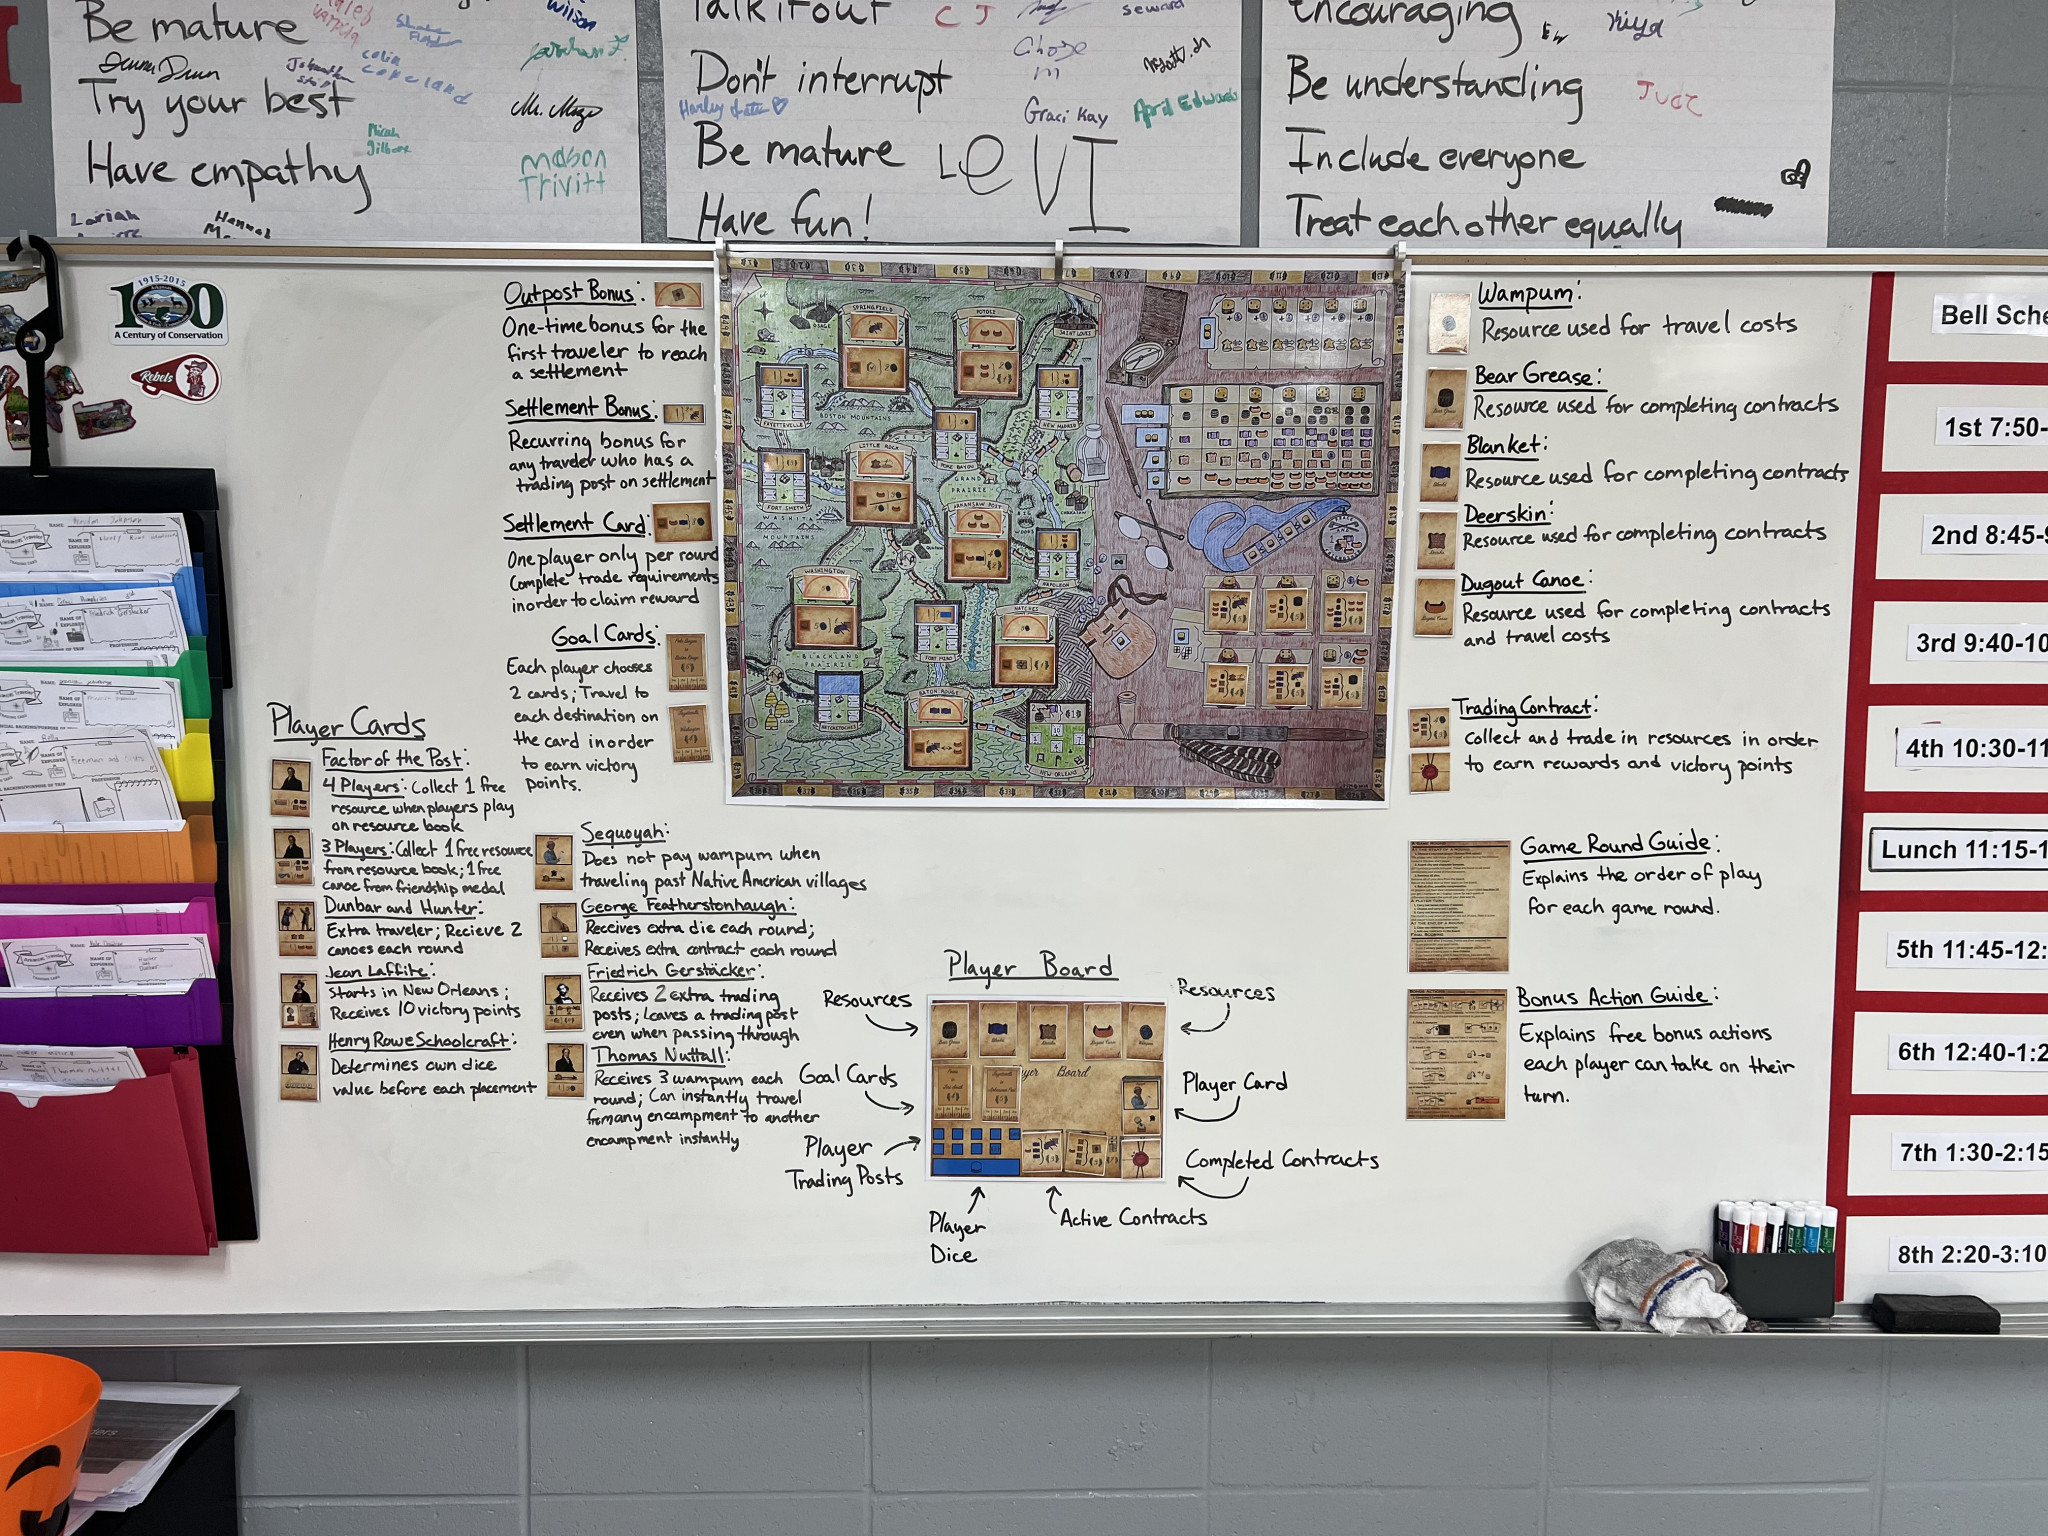 Be mature
Try your best
Have empathy
Colin
Copeland
Mr. Mayo
Micah
Mason
Trivitt
Lariah
Hannah
Talk it out
CJ
Seward
Don't interrupt
Chase
M
Harley
Graci Kay
April Edwards
Be mature
LEVI
Have fun!
encouraging
EW
Kiya
Be understanding
Include everyone
Treat each other equally
1915-2015
100
A Century of Conservation
Rebels
Outpost Bonus:
One-time bonus for the
first traveler to reach
a settlement
Settlement Bonus:
Recurring bonus for
any traveler who has a
trading post on settlement
Settlement Card:
One player only per round
Complete trade requirements
in order to claim reward
Goal Cards:
Each player chooses
2 cards; Travel to
each destination on
the card in order
to earn victory
points.
Player Cards
Factor of the Post:
4 Players: Collect 1 free
resource when players play
on resource book
3 Players: Collect 1 free resource
from resource book; 1 free
canoe from friendship medal
Dunbar and Hunter:
Extra traveler; Recieve 2
canoes each round
Jean Laffite:
Starts in New Orleans;
Receives 10 victory points
Henry Rowe Schoolcraft:
Determines own dice
value before each placement
Sequoyah:
Does not pay wampum when
traveling past Native American villages
George Featherstonhaugh:
Receives extra die each round;
Receives extra contract each round
Friedrich Gerstäcker:
Receives 2 extra trading
posts; Leaves a trading post
even when passing through
Thomas Nuttall:
Receives 3 wampum each
round; Can instantly travel
from any encampment to another
encampment instantly
SPRINGFIELD
POTOSI
SAINT LOUIS
OSAGE
BOSTON MOUNTAINS
FAYETTEVILLE
NEW MADRID
LITTLE ROCK
POKE BAYOU
GRAND
PRAIRIE
FORT SMITH
ARKANSAW POST
CHICKASAW
WASHITA
MOUNTAINS
WASHINGTON
NAPOLEON
NATCHEZ
FORT MIRO
BLACKLAND
PRAIRIE
BATON ROUGE
CADDO
NATCHITOCHES
NEW ORLEANS
Player Board
Resources
Resources
Goal Cards
Player Card
Player
Trading Posts
Completed Contracts
Player
Dice
Active Contracts
Player Board
Wampum:
Resource used for travel costs
Bear Grease:
Resource used for completing contracts
Blanket:
Resource used for completing contracts
Deerskin:
Resource used for completing contracts
Dugout Canoe:
Resource used for completing contracts
and travel costs
Trading Contract:
Collect and trade in resources in order
to earn rewards and victory points
Game Round Guide:
Explains the order of play
for each game round.
Bonus Action Guide:
Explains free bonus actions
each player can take on their
turn.
Bell Sche
1st 7:50-
2nd 8:45-9
3rd 9:40-10
4th 10:30-11
Lunch 11:15-1
5th 11:45-12:
6th 12:40-1:2
7th 1:30-2:15
8th 2:20-3:10